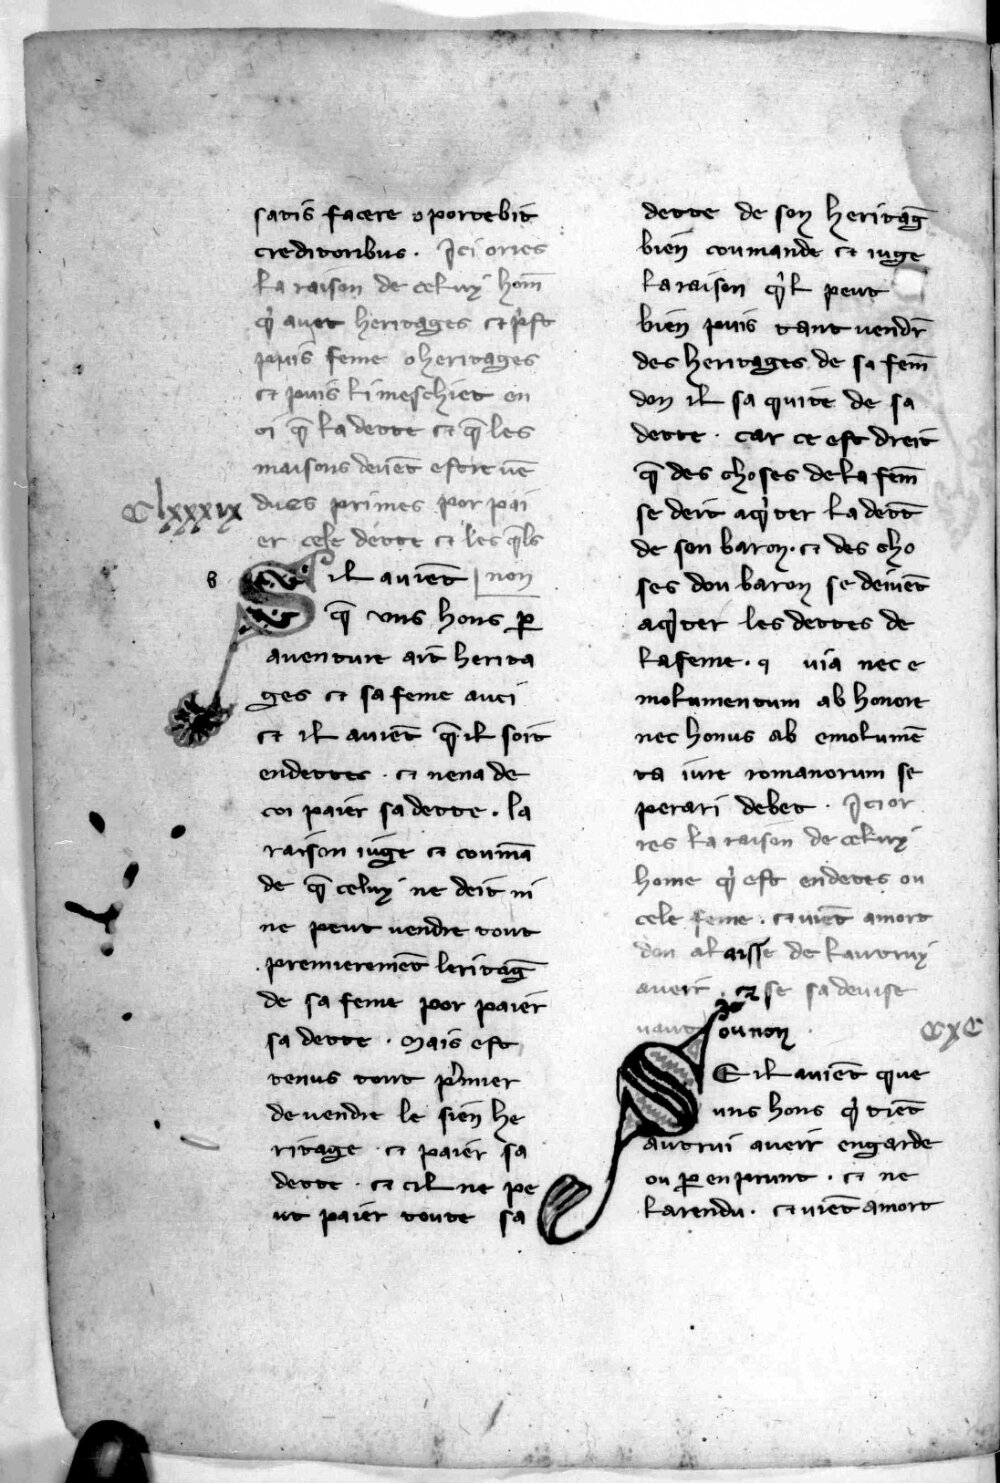 satis facere oportebit
creditoribus. Ici ories
la raison de celuy hom̄
qͥ auet heritages et pͥst
puis feme o heritages
et puis li meschiet en
si q̄ la dette et q̄ les
maisons deuēt estre uē
dues primes por pai
er cele dette et les q̄ls
non
Clxxxix
S il auient
q̄ uns hons ꝑ
auenture ait herita
ges et sa feme auci
et il auiēt q̄ il soit
endettes. et nena de
coi paier sa dette. la
raison iuge et coumā
de q̄ celuy ne deit ni
ne peut uendre tout
premieremēt leritaḡ
de sa feme por paier
sa dette. Mais est
tenus tout pͥmier
de uendre le sien he
ritage. et paier sa
dette. et cil ne pe
ut paier toute sa
dette de son heritaḡ
bien coumande et iuge
la raison qͥl peut
bien puis tant uendr̄
des heritages de sa fem̄
don il sa quite de sa
dette. car ce est dreit
q̄ des choses de la fem̄
se deit aqͥter la dett̄
de son baron. et des cho
ses dou baron se deiuēt
aqͥter les dettes de
la feme. q uia nec e
molumentum ab honore
nec honus ab emolumē
to iure romanorum se
perari debet. Ici or
res la raison de celuy
home qͥ est endetes ou
cele feme. et uiēt a mort
don a laisse de lautruy
aueir. et se sa deuise
uaut ou non.
CXC
S E il auiēt que
uns hons qͥ tiēt
autrui aueir en garde
ou ꝑ enprunt. et ne
la rendu. et uiēt a mort